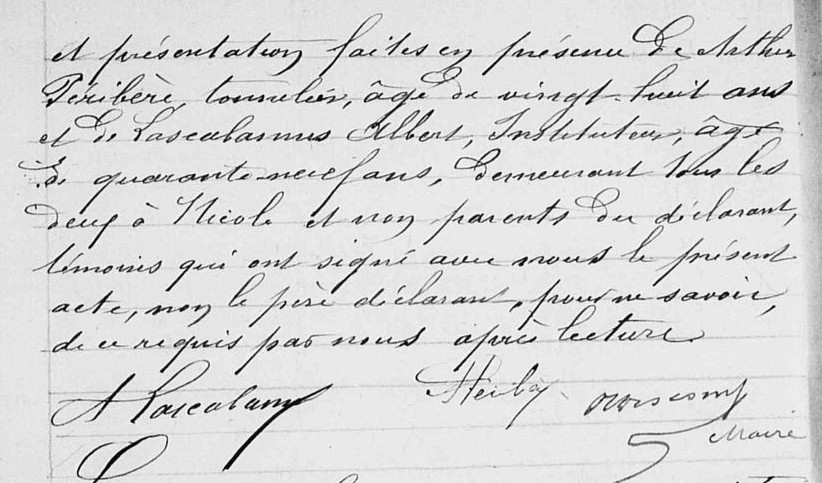 et présentation faites en présence de Arthur
Péribère, tonnelier, âgé de vingt-huit ans
et de Lascabannes Albert, Instituteur, âgé
de quarante-neuf ans, demeurant tous les
deux à Nicole et non parents du déclarant,
témoins qui ont signé avec nous le présent
acte, non le père déclarant, pour ne savoir,
de ce requis par nous après lecture
A Lascabannes
Maire